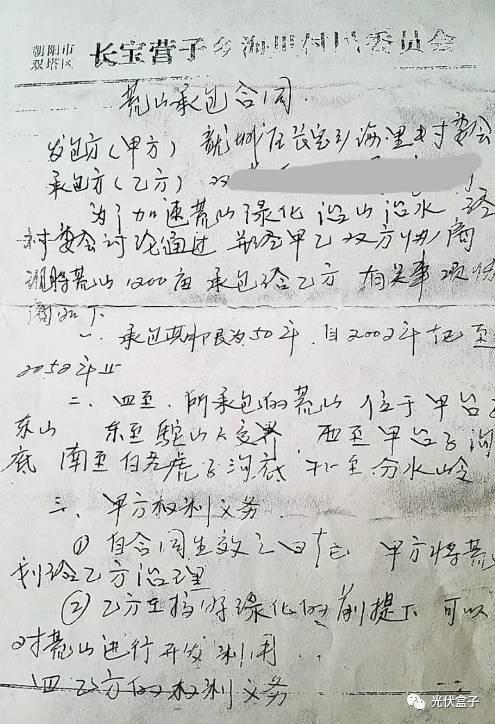 朝阳市
双塔区 长宝营子乡海里村村民委员会
荒山承包合同
发包方(甲方) 龙城区长宝乡海里村委会
承包方(乙方)
为了加速荒山绿化 治山治水 经
村委会讨论通过 并经甲乙双方协商
现将荒山1200亩 承包给乙方 有关事项协
商如下
一、承包期限为50年,自2002年起至
2052年止
二、四至,所承包的荒山 位于甲台子
东山 东至 交界,西至甲台子沟
底 南至 虎子沟底 北至分水岭
三、甲方权利义务
① 自合同生效之日起 甲方将荒
划给乙方治理
② 乙方在搞好绿化的前提下 可以
对荒山进行开发利用
四 乙方的权利义务
光伏盒子